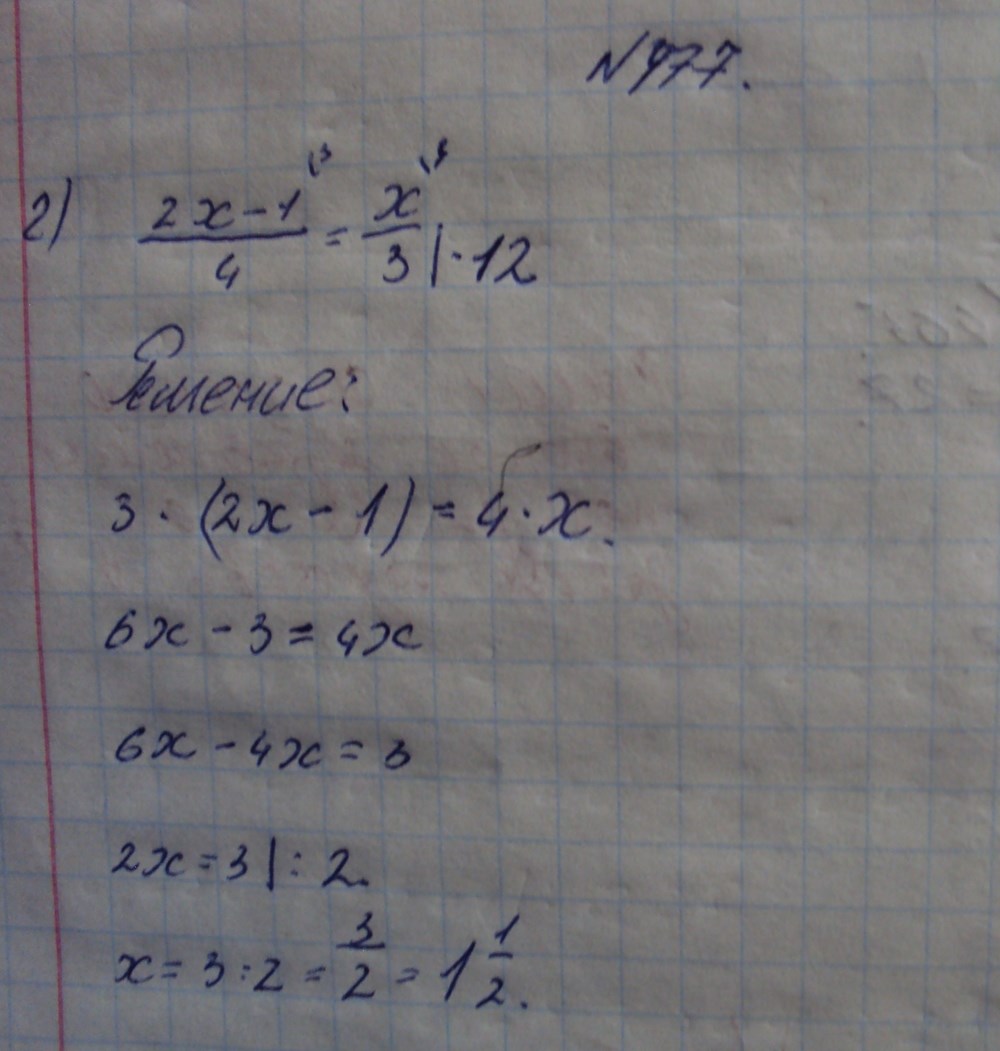 №977.
2) (2x-1)/4 \3 = x/3 \4 |·12
Решение:
3·(2x-1)=4·x.
6x-3=4x
6x-4x=3
2x=3|:2.
x=3:2=3/2=1 1/2.